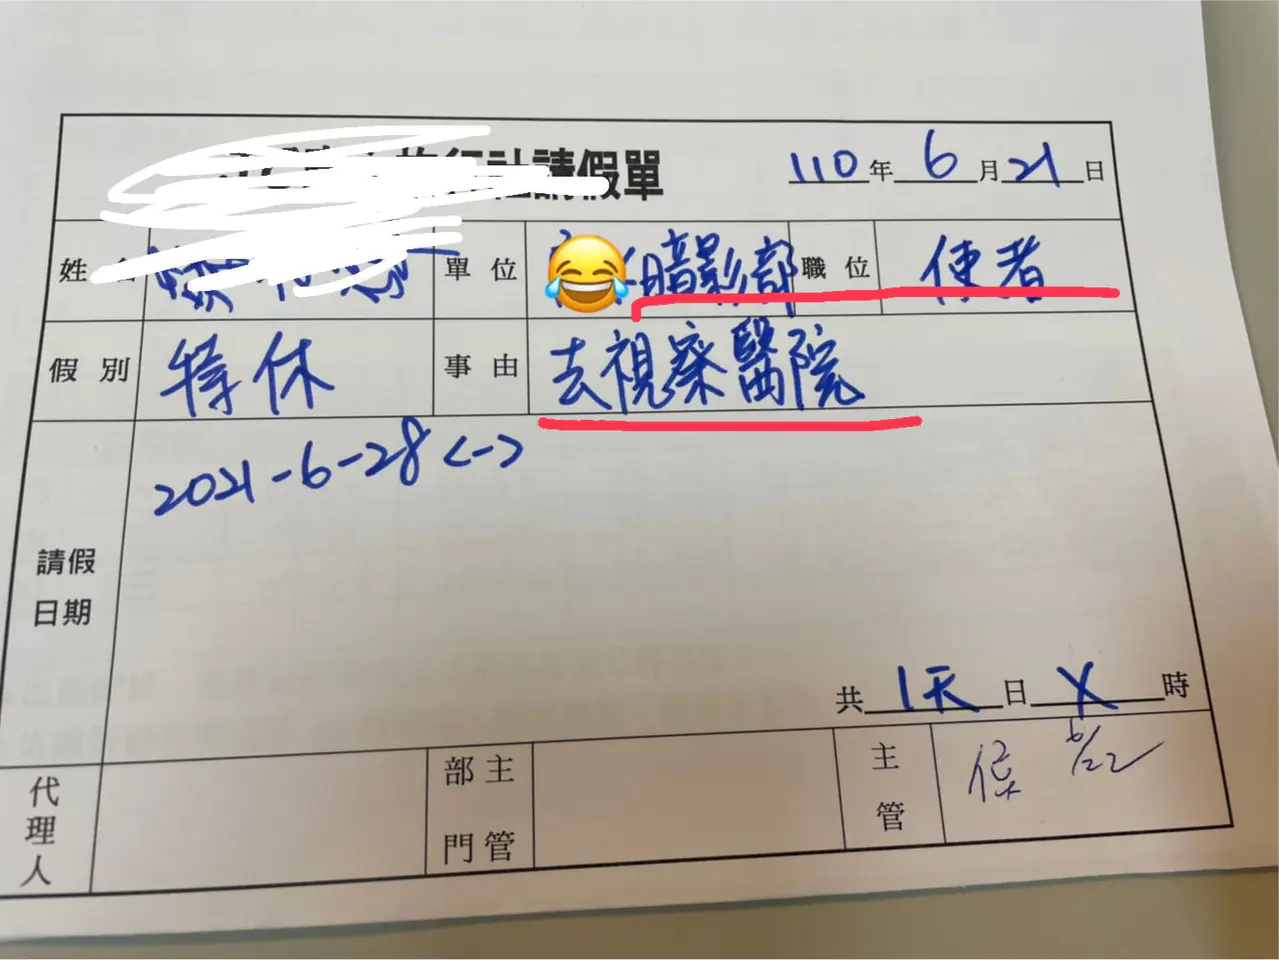 請假單 110年6月21日
姓 單位 暗影部 職位 使者
假別 特休 事由 去視察醫院
請假日期 2021-6-28<->
共1天日X時
代理人 部門主管 主管 6/22